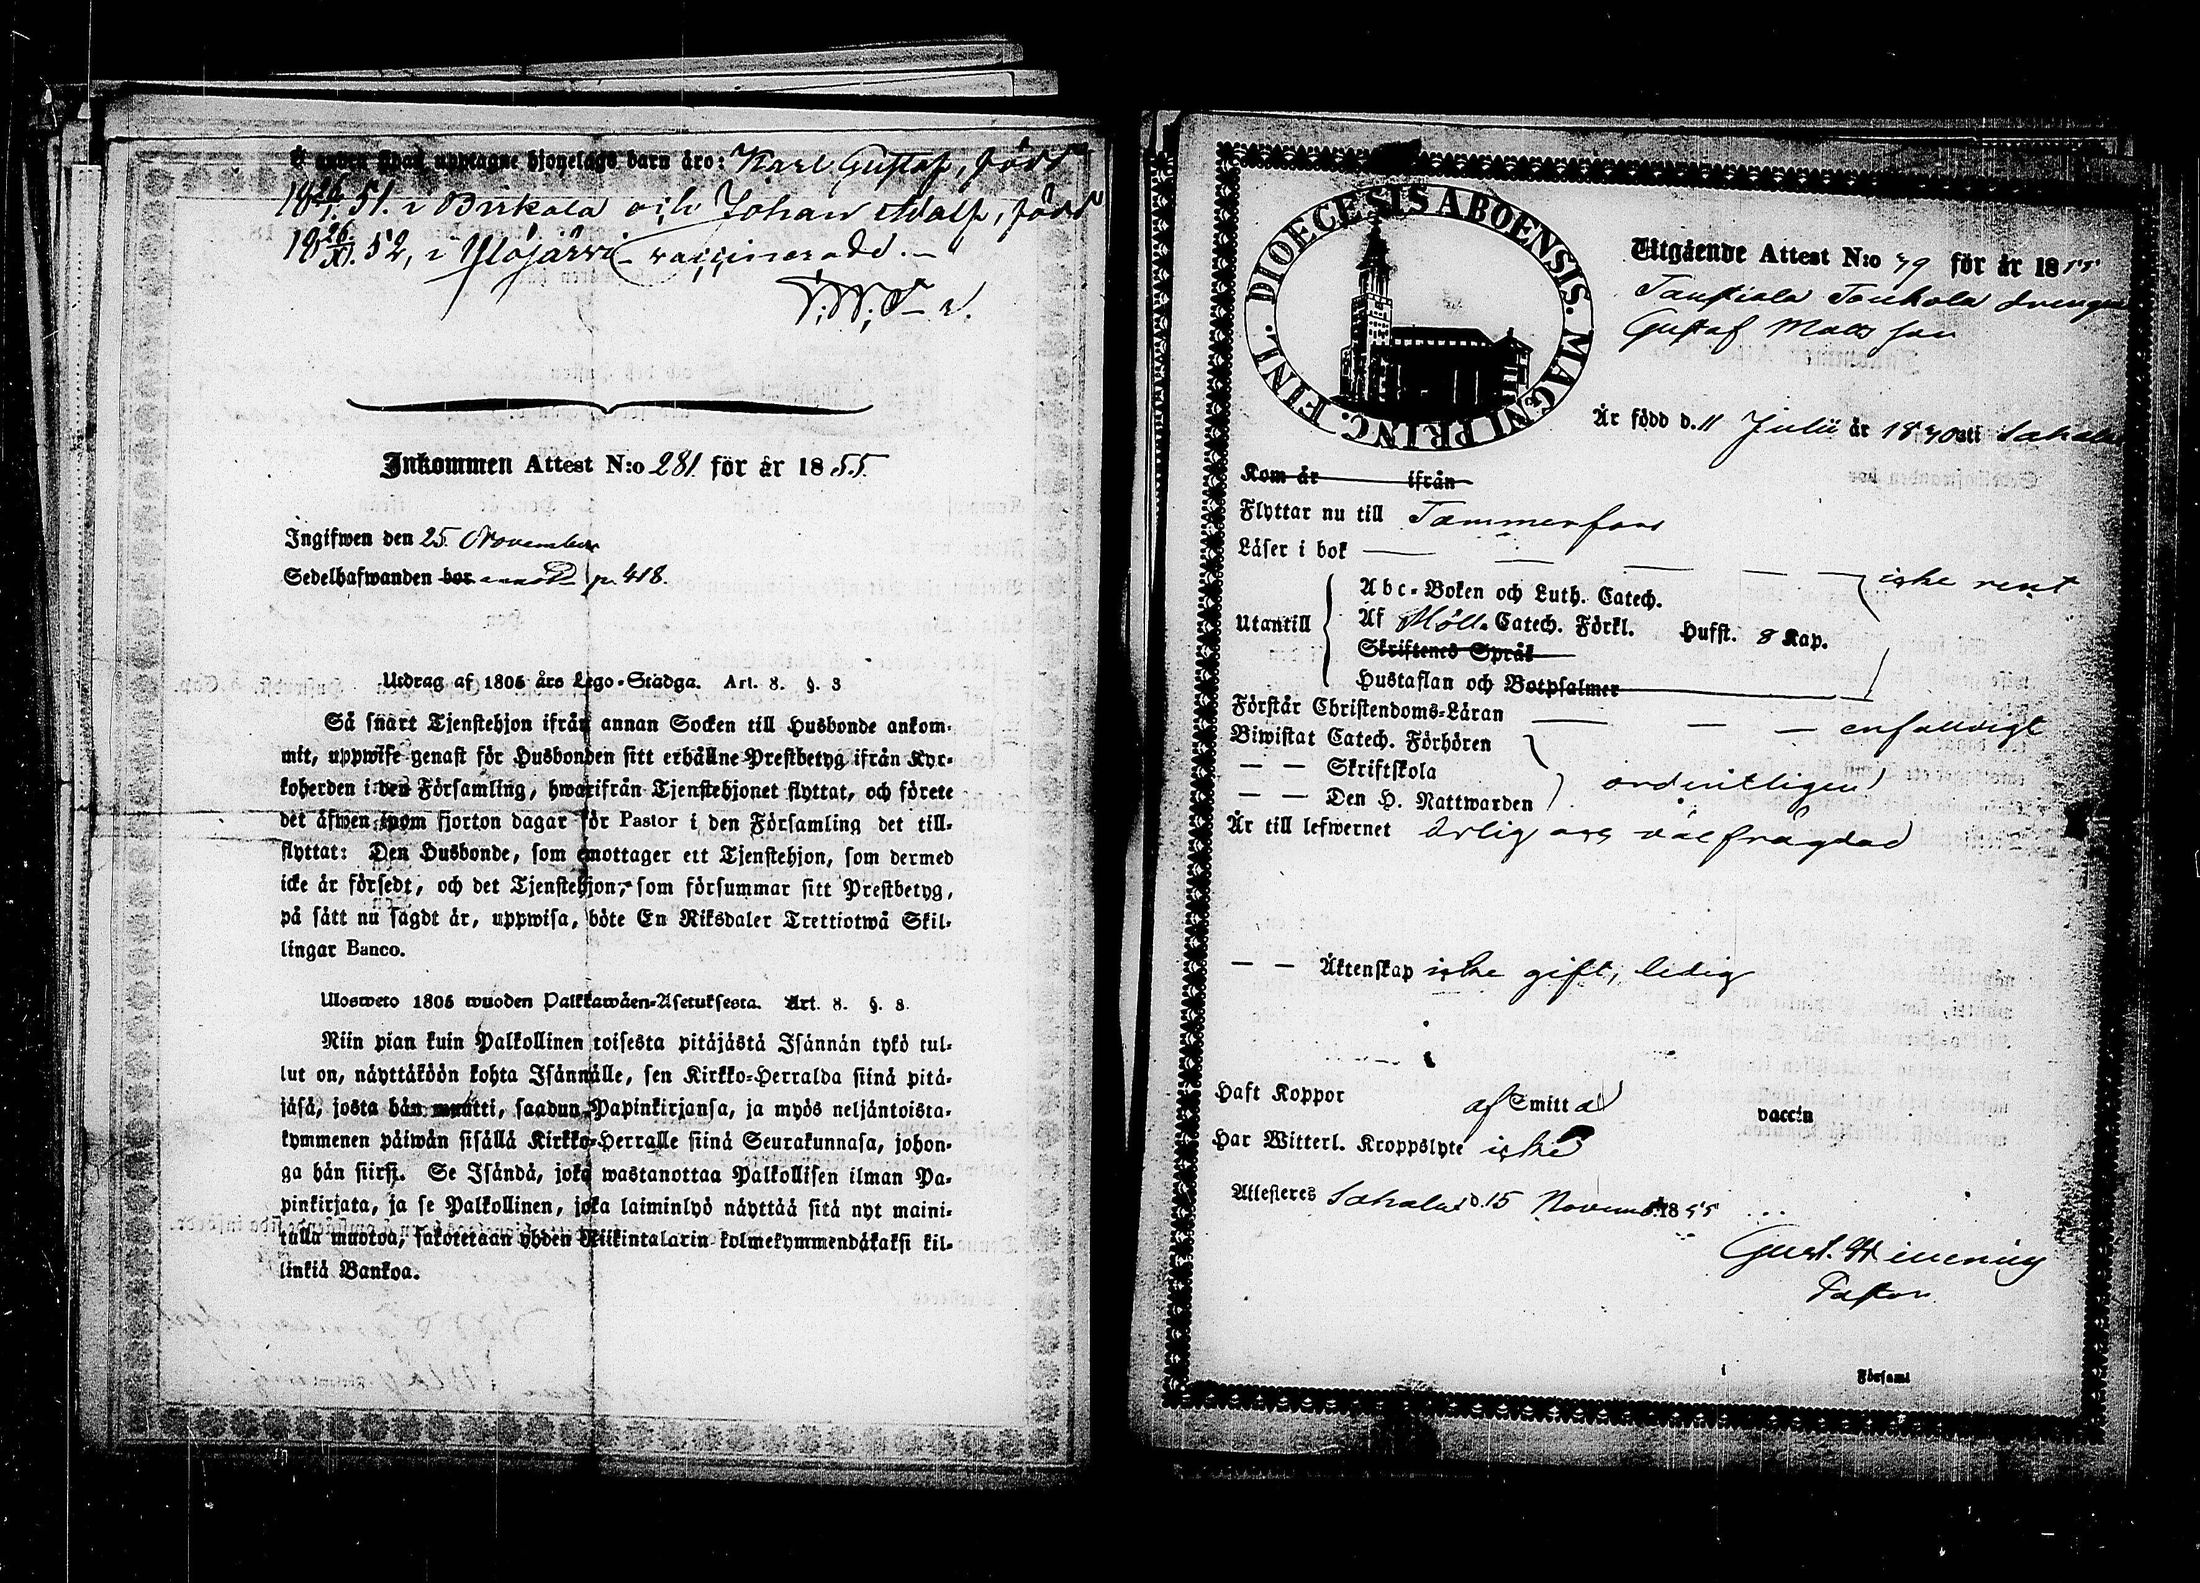 å andra sidan upptagne hjonelags barn äro: Karl Gustaf, född
18 26/1. 51. i Birkala och Johan Adolf, född
18 26/XI. 52, i Ylöjärvi – vaccinerade. –
Inkommen Attest N:o 281 för år 1855.
Ingifwen den 25 November
Sedelhafwanden bor p. 418.
Utdrag af 1805 års Lego-Stadga. Art. 8. §. 3
Så snart Tjenstehjon ifrån annan Socken till Husbonde ankom-
mit, uppwise genast för Husbonden sitt erhållne Prestbetyg ifrån Kyr-
koherden i den Församling, hwarifrån Tjenstehjonet flyttat, och förete
det äfwen inom fjorton dagar för Pastor i den Församling det till-
flyttat: Den Husbonde, som emottager ett Tjenstehjon, som dermed
icke är försedt, och det Tjenstehjon, som försummar sitt Prestbetyg,
på sätt nu sagdt är, uppwisa, böte En Riksdaler Trettiotwå Skil-
lingar Banco.
Ulosweto 1805 wuoden Palkkawäen-Asetuksesta. Art. 8. §. 3.
Niin pian kuin Palkollinen toisesta pitäjästä Isännän tykö tul-
lut on, näyttäköön kohta Isännälle, sen Kirkko-Herralda siinä pitä-
jäsä, josta hän muutti, saadun Papinkirjansa, ja myös neljäntoista-
kymmenen päiwän sisällä Kirkko-Herralle siinä Seurakunnasa, johon-
ga hän siirsi. Se Isändä, joka wastanottaa Palkollisen ilman Pa-
pinkirjata, ja se Palkollinen, joka laiminlyö näyttää sitä nyt maini-
tulla muotoa, sakotetaan yhden Riikintalarin kolmekymmendäkaksi kil-
linkiä Bankoa.
DIOECESIS ABOENSIS. MAGNI PRINC. FINL.
Utgående Attest N:o 79 för år 1855
Drengen
Gustaf Matsson
Är född d. 11 Julii år 1830 uti Sahalax
Kom år ifrån
Flyttar nu till Tammerfors
Läser i bok — — — — icke rent
Utantill
Abc-Boken och Luth. Catech.
Af Möll. Catech. Förkl. Husst. 8 Kap.
Skriftenes Språk
Hustaflan och Botpsalmer
Förstår Christendoms-Läran — — — enfalldigt
Biwistat Catech. Förhören
— — Skriftskola ordentligen
— — Den H. Nattwarden
Är till lefwernet ärlig och välfrägdad
— — Äktenskap icke gift, ledig
Haft Koppor af Smitta vaccin
Har Witterl. Kroppslyte icke
Attesteres Sahalax d. 15 Novemb. 1855
Gust.
Pastor
Församl